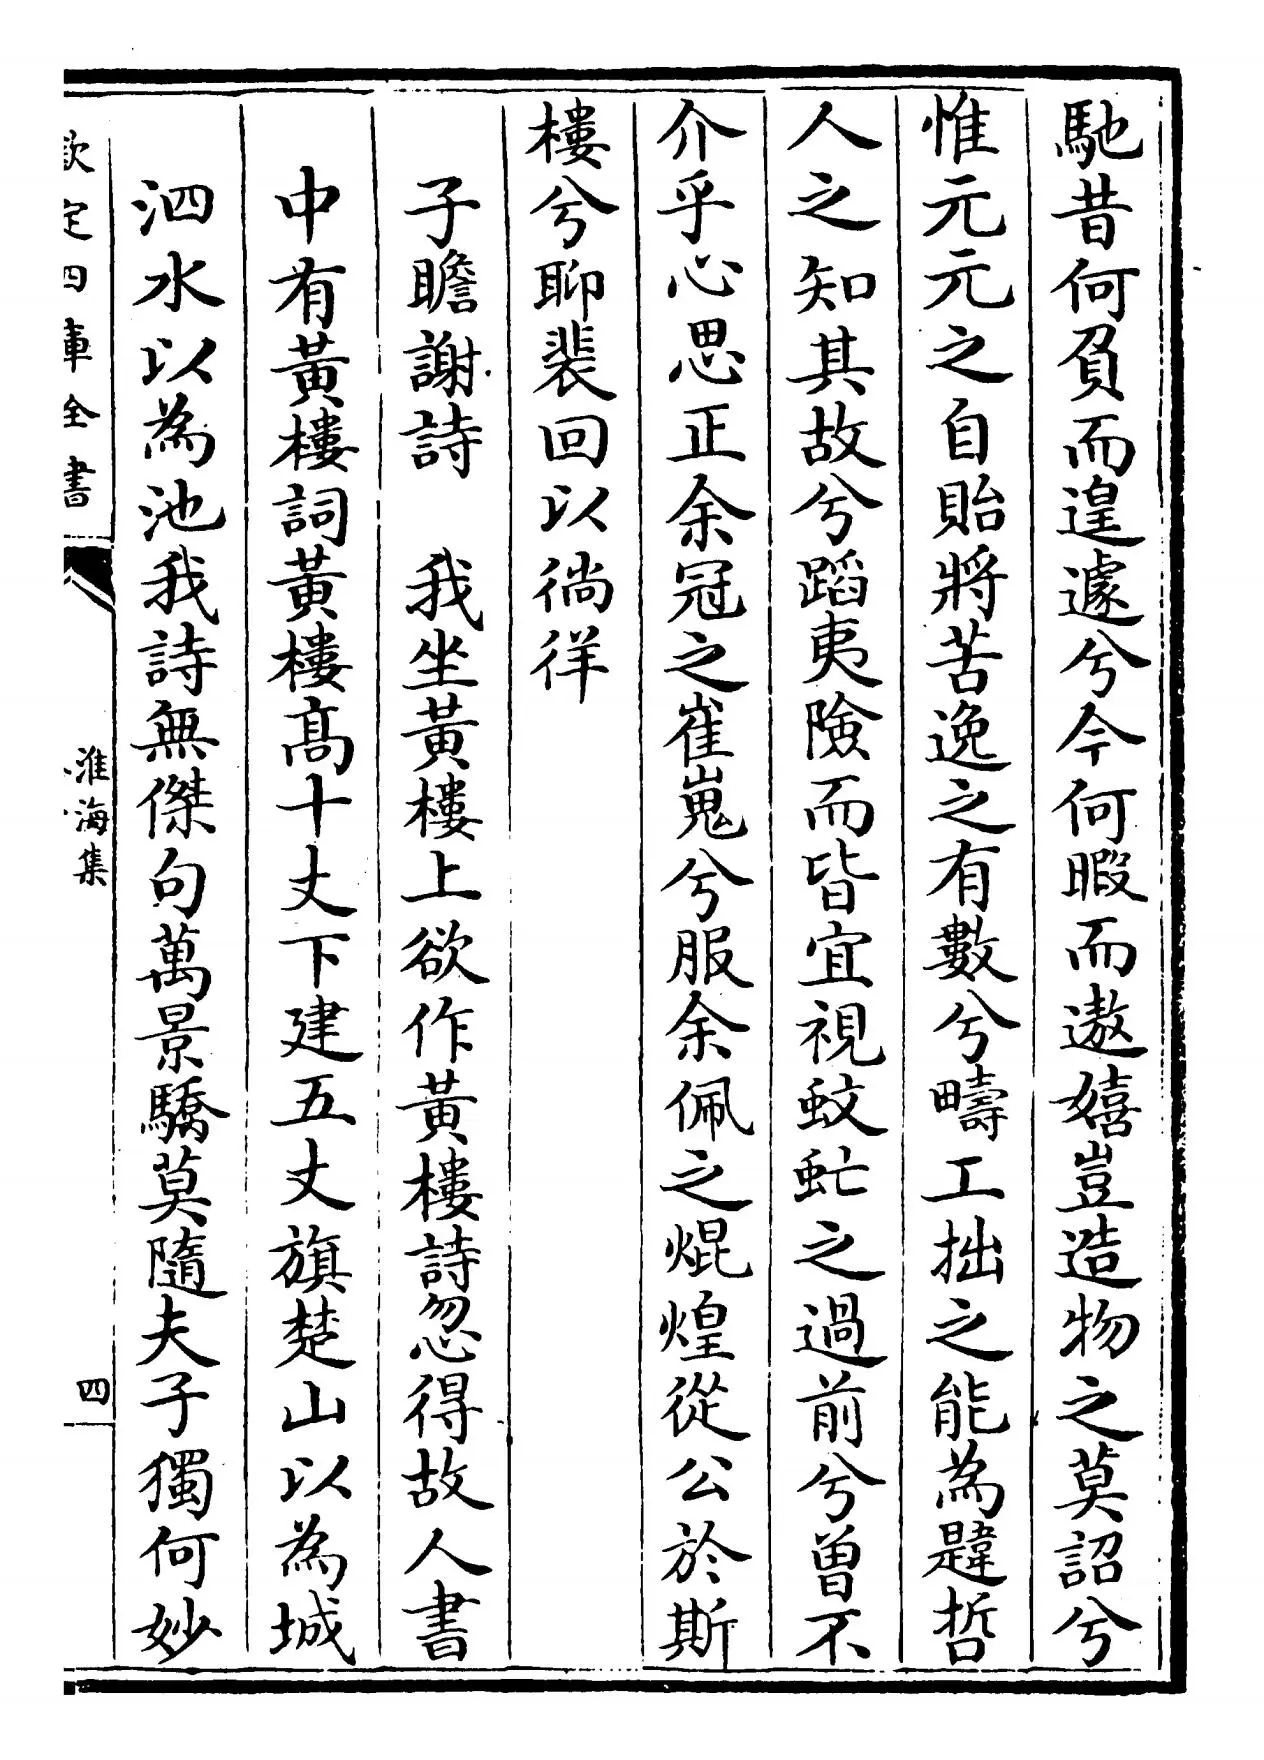 馳昔何負而遑遽兮今何暇而遨嬉豈造物之莫詔兮
惟元元之自貽將苦逸之有數兮疇工拙之能為韙哲
人之知其故兮蹈夷險而皆宜視蚊虻之過前兮曽不
介乎心思正余冠之崔嵬兮服余佩之焜煌從公於斯
樓兮聊裴回以徜徉
子瞻謝詩　我坐黄樓上欲作黄樓詩忽得故人書
中有黄樓詞黄樓髙十丈下建五丈旗楚山以為城
泗水以為池我詩無傑句萬景驕莫隨夫子獨何妙
欽定四庫全書
淮海集
四